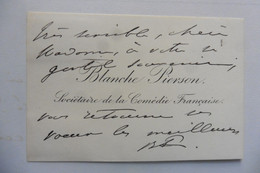 Très sensible, chère
Madame, à votre si
gentil souvenir,
Blanche Pierson
Sociétaire de la Comédie Française
vous retourne ses
voeux les meilleurs